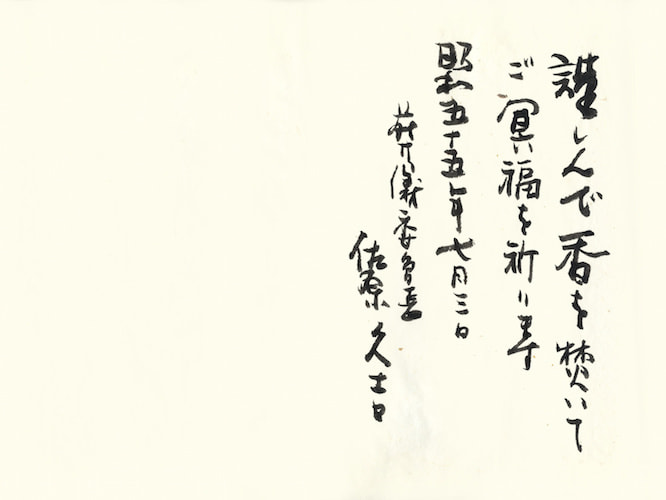 謹しんで香を焚いて
ご冥福を祈ります
昭和五十五年七月三日
葬儀委員長
佐原